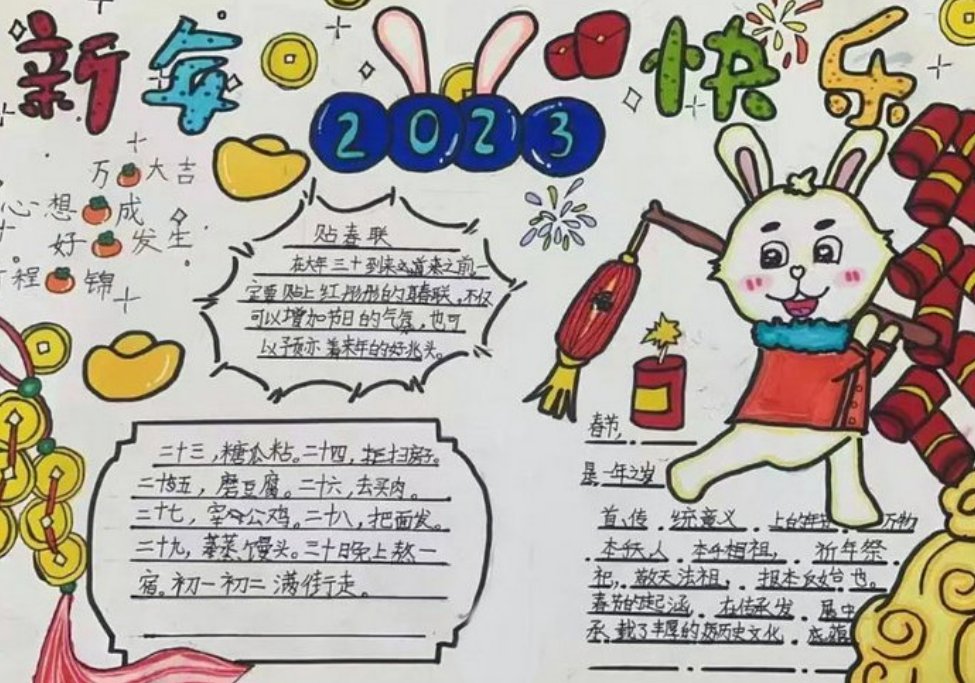 新年快乐
2023
万大吉
心想成
好发生
程锦
贴春联
在大年三十到来之前,一
定要贴上红彤彤的春联。不仅
可以增加节日的气氛,也可
以预示着来年的好兆头。
二十三,糖瓜粘。二十四,扫房子。
二十五,磨豆腐。二十六,去买肉。
二十七,宰公鸡。二十八,把面发。
二十九,蒸馒头。三十晚上熬一
宿。初一初二满街行走。
春节,
是一年之岁
首,传统意义上的年 万物
本天人本相祖,祈年祭
祀,敬天法祖,报本反始也。
春节的起涵,在传承发展中
承载了丰厚的历史文化底蕴